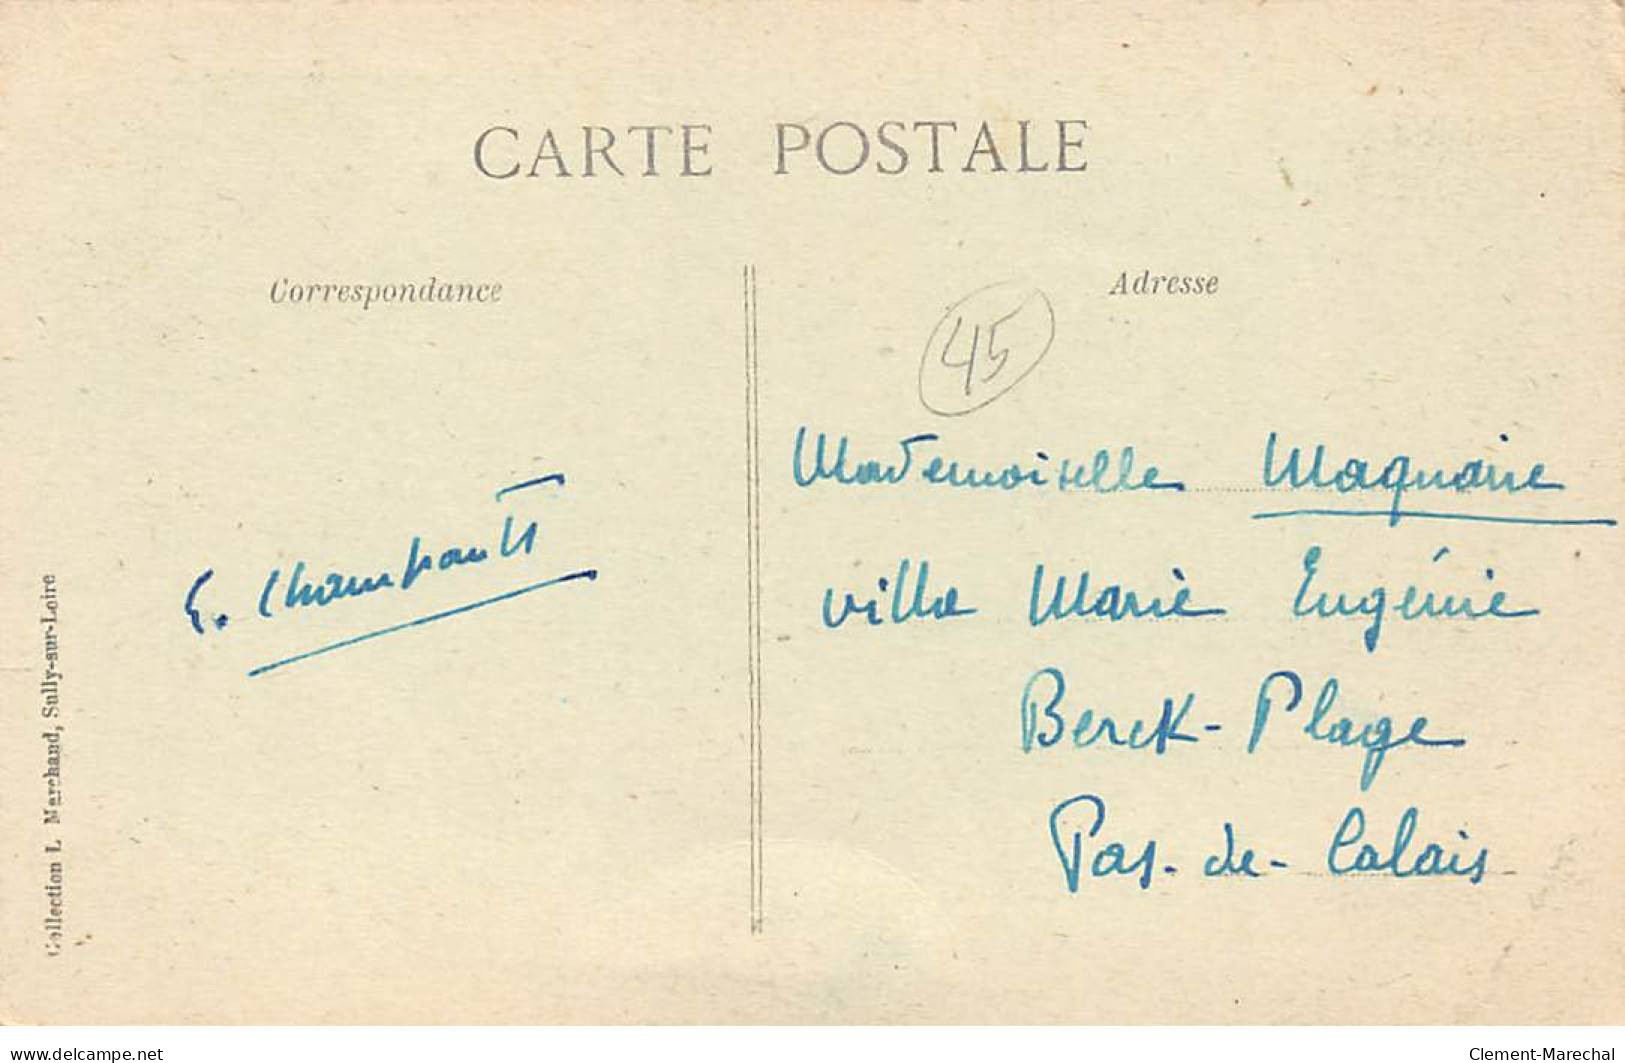 CARTE POSTALE
Correspondance
Adresse
45
Mademoiselle Maquaire
villa Marie Eugénie
Berck-Plage
Pas-de-Calais
E.
Collection L. Marchand, Sully-sur-Loire
www.delcampe.net
Clement-Marechal